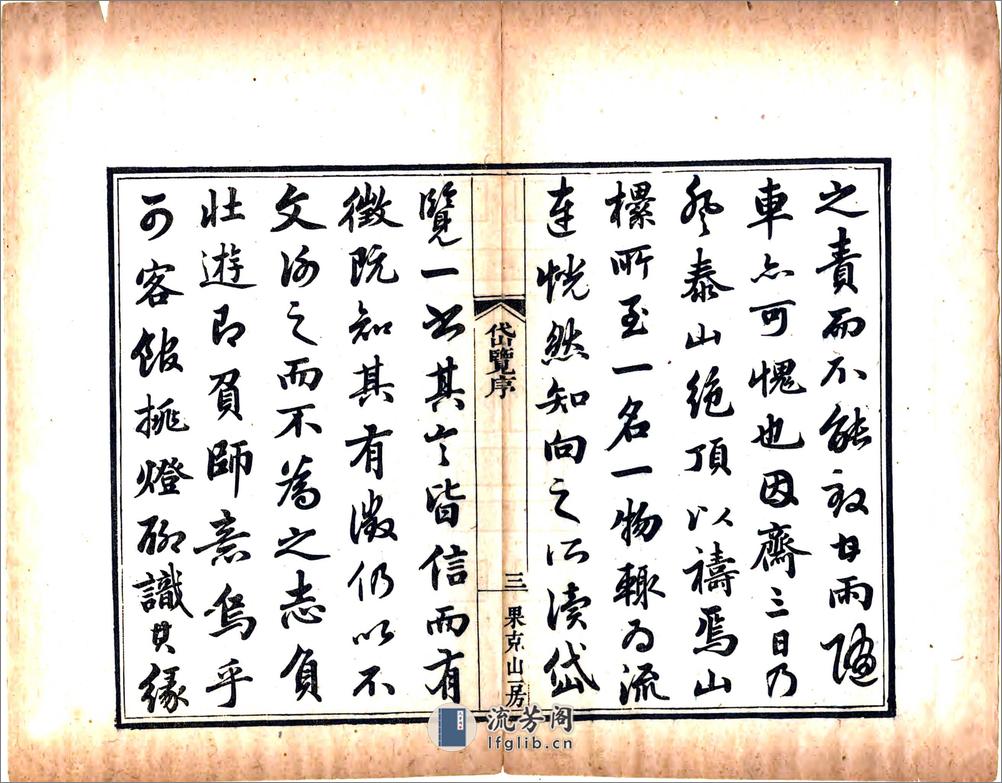 之責而不能致甘雨隨
車亦可愧也因齋三日乃
登泰山絶頂以禱焉山
樏所至一名一物輒為流
連恍然知向之所讀岱
岱覽序
三
果克山房
覽一書其言皆信而有
徵既知其有徵仍以不
文泐之而不為之志負
壯遊即負師意烏乎
可客館挑燈聊識其緣
流芳阁
lfglib.cn